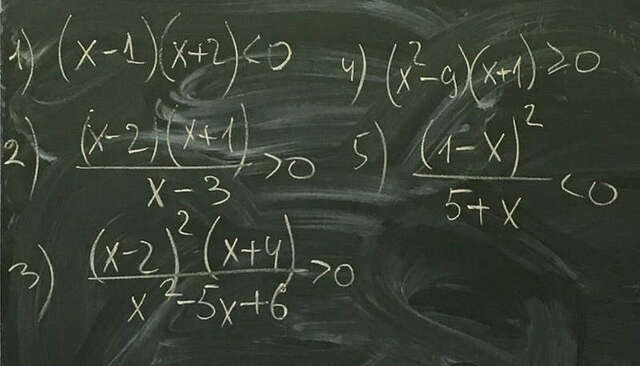 1) (x-1)(x+2)<0
2) (x-2)(x+1)/(x-3) >0
3) (x-2)²(x+4)/(x²-5x+6) >0
4) (x²-9)(x+1)≥0
5) (1-x)²/(5+x) <0